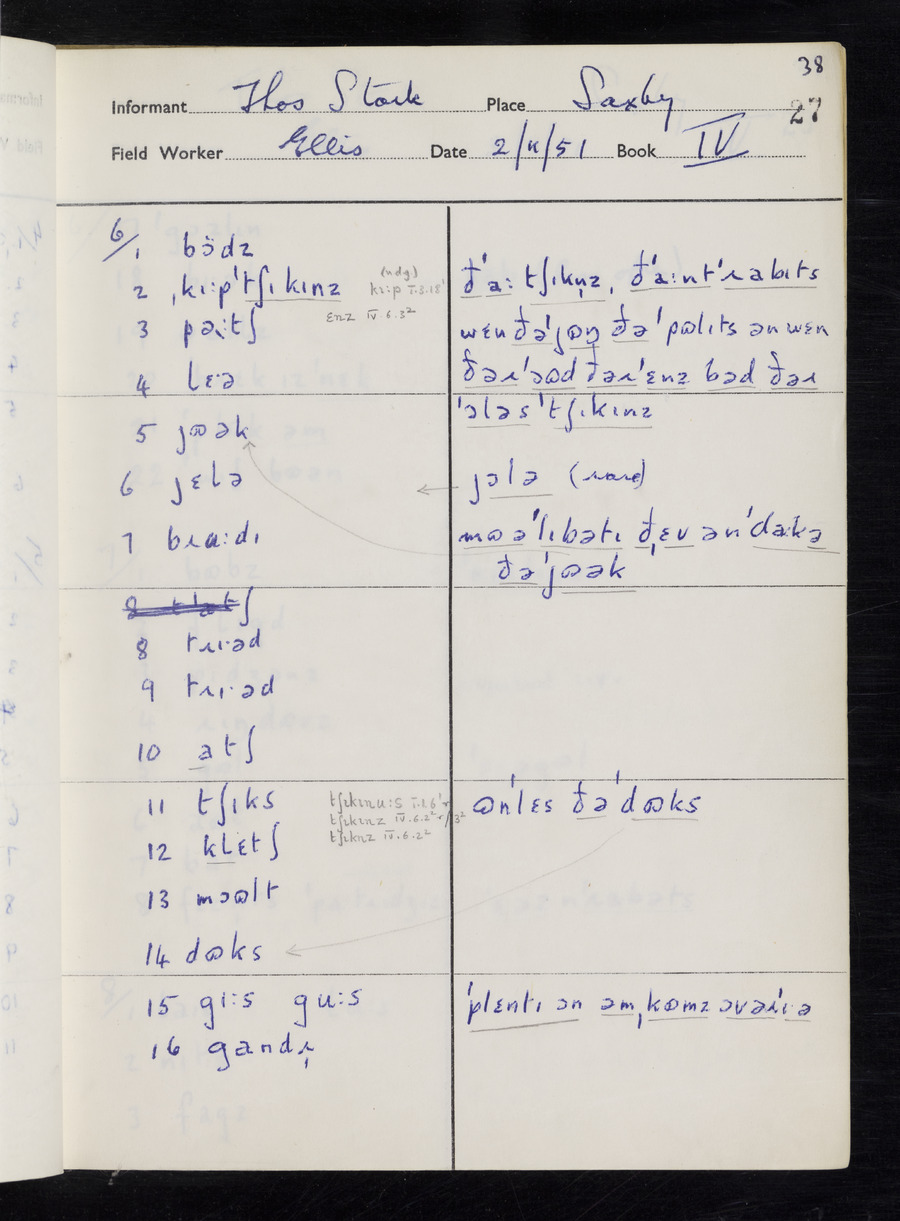 38
Informant Thos Stark Place Saxby 27
Field Worker Ellis Date 2/11/51 Book IV
6/1 bödz
2 ˌkɪːpˈtʃɪkɪnz (ndg)
kɪːp I.3.18¹
3 pəɪːtʃ ɛnz IV.6.3²
4 lɛə
ðˈaː tʃɪkn̩z, ðˈaːntˈɹabɪts
wɛn ðəˈjɷŋ ðəˈpɷlɪts ən wɛn
ðəɹˈɔɷd ðəɹˈɛnz bəd ðəɹ
ˈɔləsˈtʃɪkɪnz
5 jɷək
6 jɛlə
jɔlə (rare)
7 bɹaːdɪ
mɷəˈlɪbətɪ ðˌɛv ənˈdaːkə
ðəˈjɷək
8 tɹɪˑəd
9 tɹɪˑəd
10 atʃ
11 tʃɪks
tʃɪkɪnuːs I.1.6¹
tʃɪkɪnz IV.6.2² 3²
tʃɪknz IV.6.2²
ɷnˈlɛs ðəˈdɷks
12 klɛtʃ
13 mɔɷlt
14 dɷks
15 giːs guːs
ˈplɛntɪ ən əmˌkɷmz ɔvəɹˈɪə
16 gandɹ̩